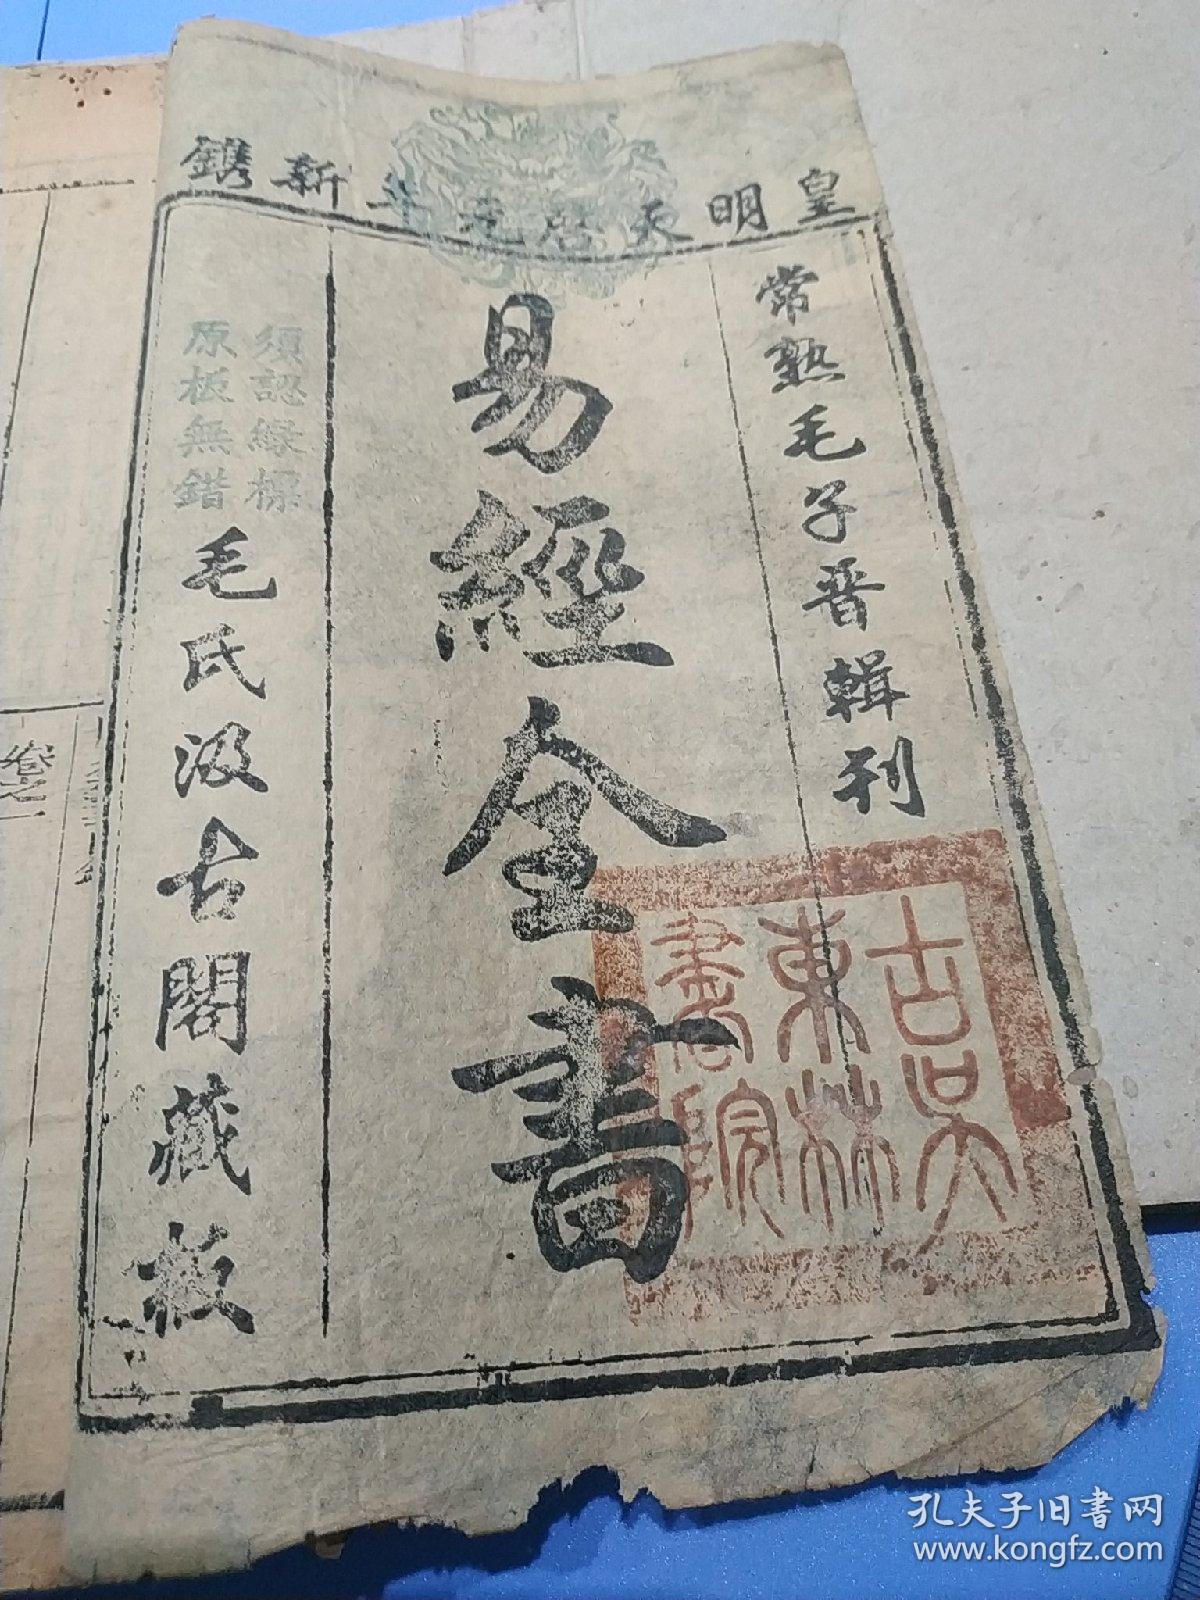 皇明天啓元年新鐫
常熟毛子晉輯刊
易經全書
須認緑標
原板無錯
毛氏汲古閣藏板
古吳
東林
書院
卷之一
孔夫子旧书网
www.kongfz.com